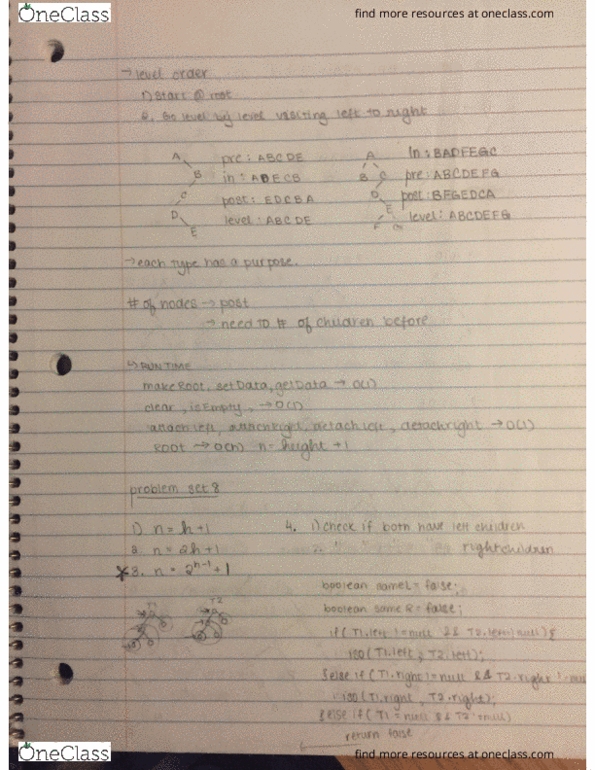 OneClass
find more resources at oneclass.com
→ level order
1) Start @ root
2. Go level by level visiting left to right
A
B
C
D
E
pre: ABCDE
in: ADECB
post: EDCBA
level: ABCDE
A
B C
D
E
F G
In: BADFEGC
pre: ABCDEFG
post: BFGEDCA
level: ABCDEFG
→ each type has a purpose.
# of nodes → post
→ need to # of children before
↳ RUNTIME
makeRoot, setData, getData → O(1)
clear, isEmpty, → O(1)
attachleft, attachright, detachleft, detachright → O(1)
Root → O(n) n = height + 1
problem set 8
1) n = h+1
2. n = 2h+1
*3. n = 2^h-1 + 1
T1
T2
4. 1) check if both have left children
right children
boolean sameL = false;
boolean same R = false;
if (T1.left != null && T2.left != null) {
iso (T1.left, T2.left);
}else if (T1.right != null && T2.right != null
iso (T1.right, T2.right);
}else if (T1 = null && T2 = null)
return false
OneClass
find more resources at oneclass.com